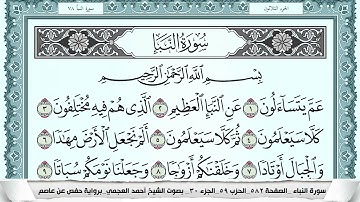 الجزء الثلاثون سورة النبأ ٧٨
سُورَةُ النَّبَإِ
بِسْمِ اللَّهِ الرَّحْمَٰنِ الرَّحِيمِ
عَمَّ يَتَسَاءَلُونَ ١ عَنِ النَّبَإِ الْعَظِيمِ ٢ الَّذِي هُمْ فِيهِ مُخْتَلِفُونَ ٣
كَلَّا سَيَعْلَمُونَ ٤ ثُمَّ كَلَّا سَيَعْلَمُونَ ٥ أَلَمْ نَجْعَلِ الْأَرْضَ مِهَٰدًا ٦
وَالْجِبَالَ أَوْتَادًا ٧ وَخَلَقْنَٰكُمْ أَزْوَٰجًا ٨ وَجَعَلْنَا نَوْمَكُمْ سُبَاتًا ٩
سورة النباء _ الصفحة ٥٨٢ _ الحزب ٥٩ _ الجزء ٣٠ _ بصوت الشيخ أحمد العجمي _ برواية حفص عن عاصم